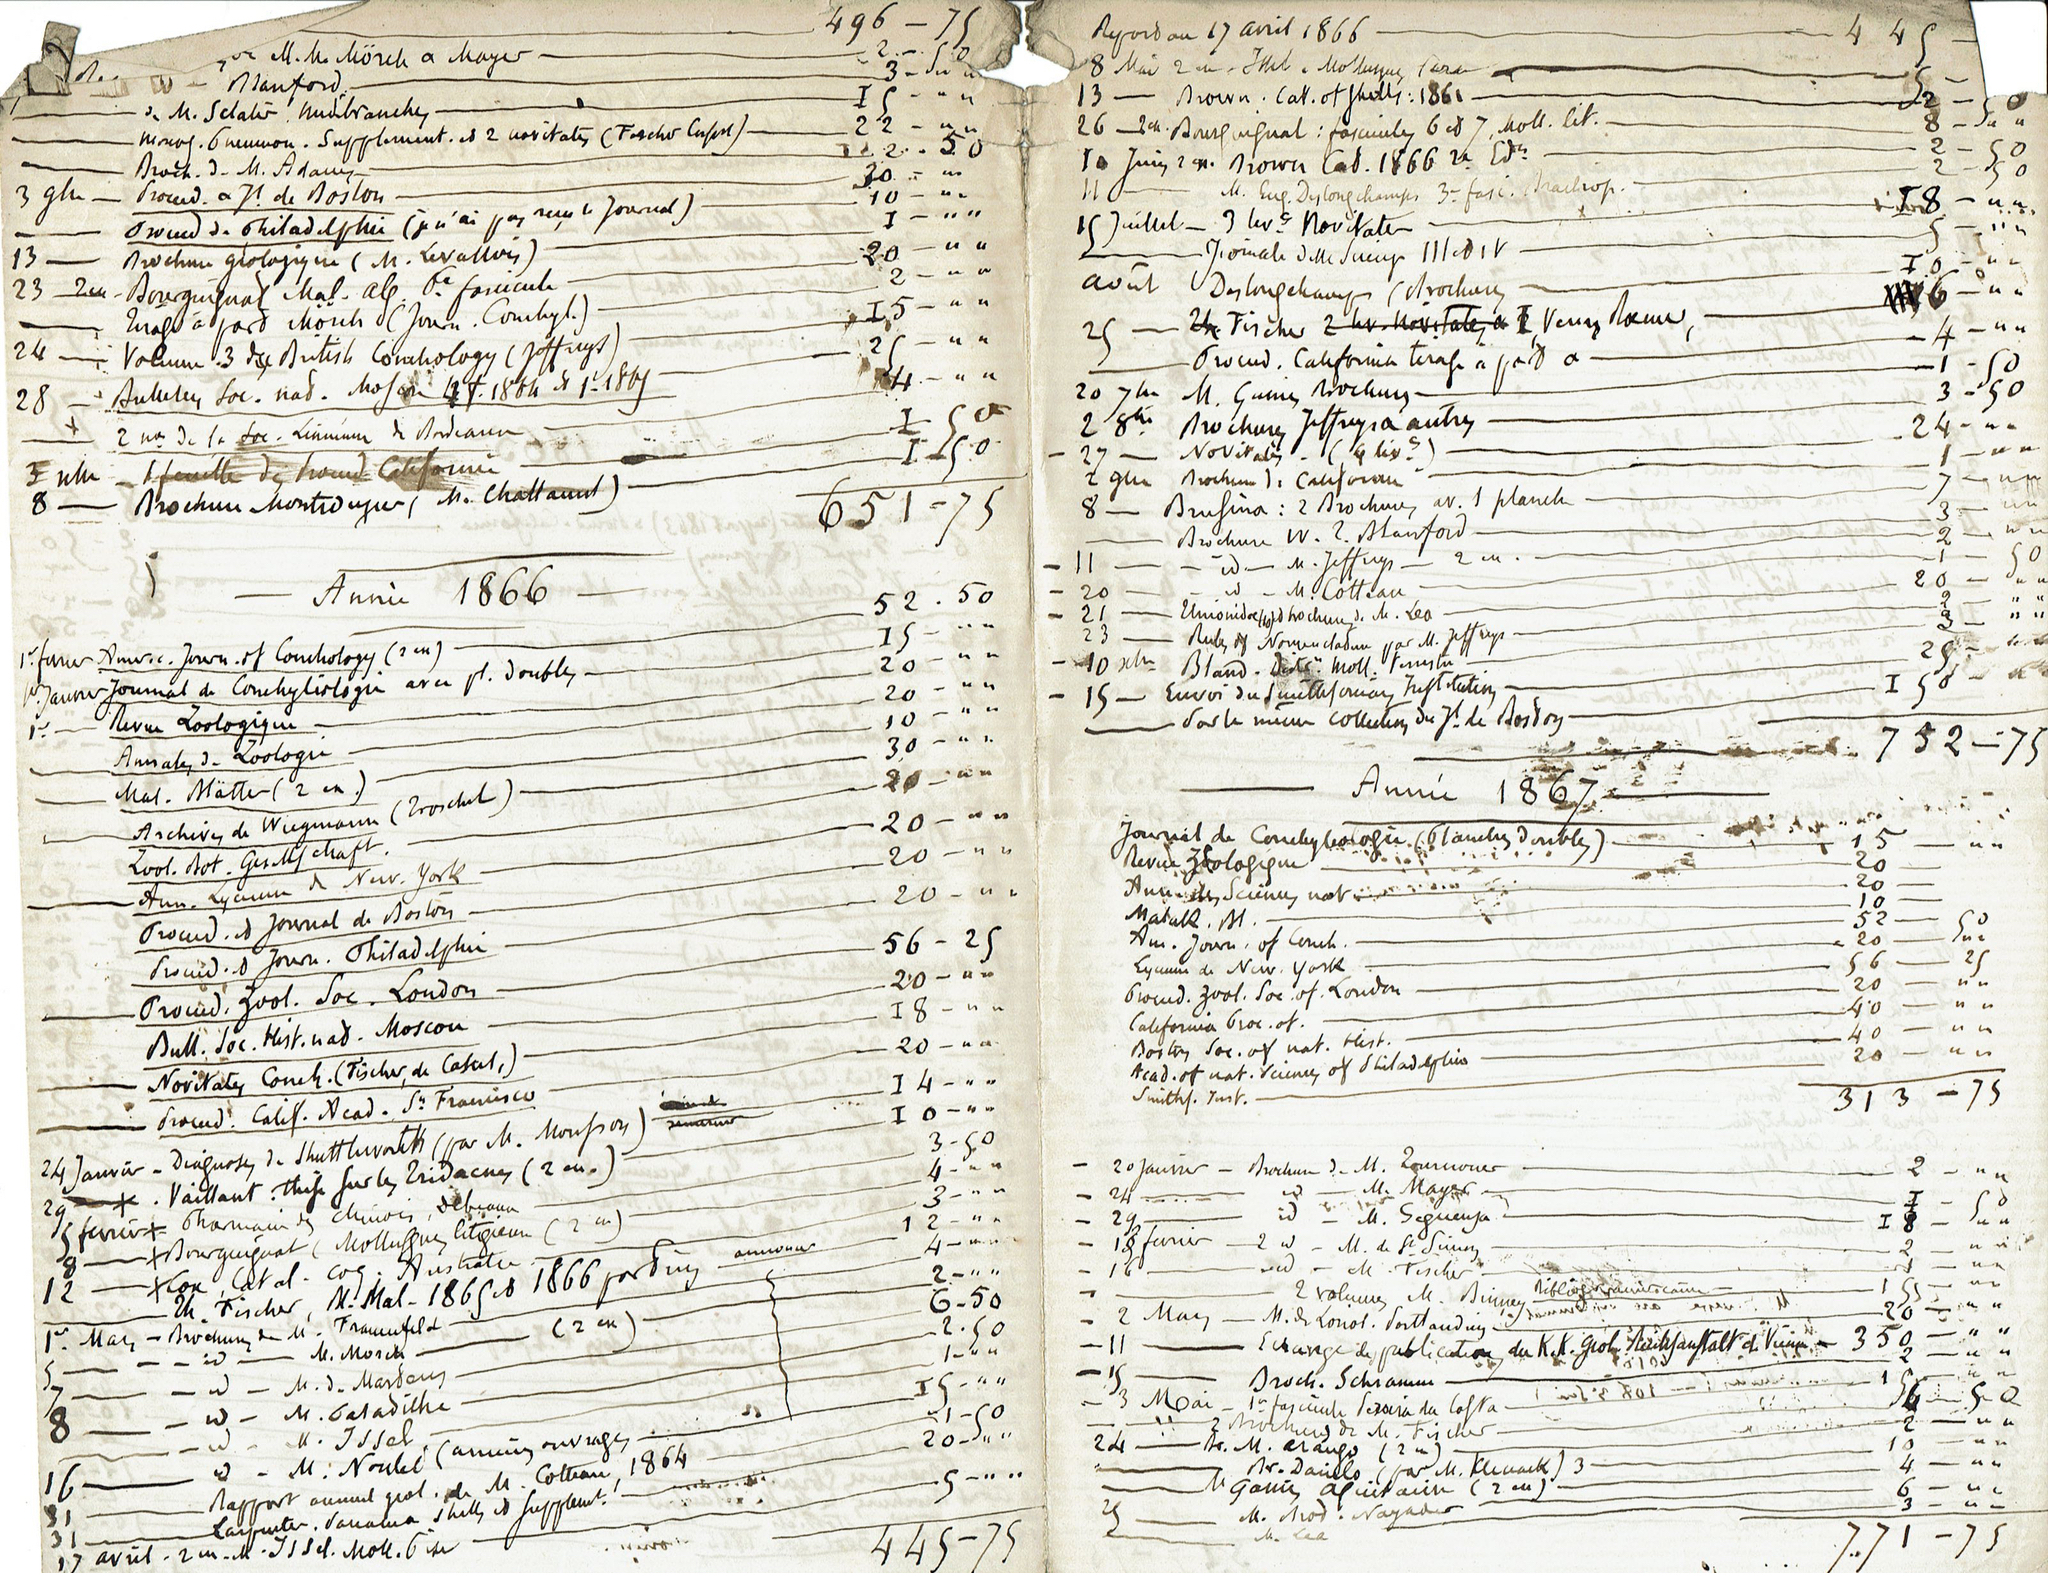 496 - 75
M. M. Mörch & Mayer 2 - 50
Blanford 3 - " "
de M. Sclater, nudibranches I5 - " "
Supplement. et 2 novitates (Fischer 22 - " "
Broch. de M. Adams 2 - 50
3 9bre - Proceed. & Jl. de Boston 30 - " "
Proceed. de Philadelphie (je n'ai pas reçu le Journal) 10 - " "
13 - Brochure géologique (M. Levallois) I - " "
23 - 2 ex - Bourguignat Mal. alg. 6e fascicule 20 - " "
Tirage à part Mörch (Journ. Conchyl.) 2 - " "
24 - Volume 3 des British Conchology (Jeffreys) I5 - " "
28 - Bulletins Soc. nat. Moscou 1864 & 1 - 1865 25 - " "
2 nos de la Soc. Linnéenne de Bordeaux 4 - " "
1 feuille des Proceed California I - 50
8 - Brochure Montrouzier (M. ) I - 50
651 - 75
Année 1866
1er fevrier Americ. Journ. of Conchology (2 ex) 52 . 50
1er Janvier Journal de Conchyliologie avec pl. doubles I5 - " "
1er - Revue Zoologique 20 - " "
Annales de Zoologie 20 - " "
Mal. Blätter (2 ex.) 10 - " "
Archives de Wiegmann (Troschel) 30 - " "
Zool. Bot. Gesellschaft. 20 - " "
Ann. Lyceum de New. York 20 - " "
Proceed. et Journal de Boston 20 - " "
Proceed. et Journ. Philadelphie 20 - " "
Proceed. Zool. Soc. London 56 - 25
Bull. Soc. Hist. nat. Moscou 20 - " "
Novitates Conch. (Fischer, de Cassel,) I8 - " "
Proceed. Calif. Acad. Sn Francisco 20 - " "
24 Janvier - Diagnoses de Shuttleworth (par M. Mousson) I4 - " "
29 - Vaillant : thèse sur les Tridacnes (2 ex.) I0 - " "
5 fevrier x Pharmacie des Chinois, Debeaux 3 - 50
8 - x Bourguignat (Mollusques litigieux (2 ex) 4 - " "
12 - x Cox, Catal. coq. Australie 3 - " "
M. Fischer, N. Mal - 1865 et 1866 12 - " "
1er Mars - Brochures de M. Frauenfeld 4 - " "
5 - id - M. Morch (2 ex) 2 - " "
7 - id - M. de Martens 6 - 50
8 - id - M. Paladilhe 2 - 50
id - M. Issel 1 - " "
16 - id - M. Noulet (anciens ouvrages I5 - " "
31 Rapport annuel géol. de M. Cotteau, 1864 1 - 50
31 Carpenter. Panama Shells et Supplemt. 20 - " "
17 avril - 2 ex - M. Issel. Moll. Pise 5 - " "
445 - 75
Report au 17 avril 1866 445 -
8 Mai 2 ex - Issel - Mollusques 5 -
13 - Brown. Cat. of shells : 1861 2 - 50
26 - 2 ex. Bourguignat : fascicules 6 et 7, Moll. lit. 8 - " "
10 Juin 2 ex. Brown Cat. 1866 2e Edn 2 - 50
11 M. Eug. Deslongchamps 3e fasc. Brachiop. 2 - 50
15 Juillet - 3 livs Novitates I8 - " "
Giornale delle Scienze III et IV 5 - " "
août Deslongchamps (Brochures I0 - " "
25 - Fischer 2 liv. Novitates & Venus Rœmer, 6 - " "
Proceed. California tirage à part 4 - " "
20 7bre M. Guines Brochures 1 - 50
2 8bre Brochures Jeffreys & autres 3 - 50
27 - Novitates - (4 livs) 24 - " "
2 9bre Brochure de Californie 1 - " "
8 - Brusina : 2 Brochures av. 1 planche 7 - " "
Brochure W. T. Blanford 3 - " "
11 - id - M. Jeffreys - 2 ex. 2 - " "
20 - id - M. Cotteau 1 - 50
21 - Unionidæ brochure de M. Lea 20 - " "
23 - Rules of Nomenclature par M. Jeffreys 2 - " "
10 xbre Bland. Moll. Terrestr 3 - " "
15 - Envoi du Smithsonian Institution 25 -
Par le même collection du Jl. de Boston I50 -
752 - 75
Année 1867
Journal de Conchyliologie (Planches Doubles) 15 - " "
Revue Zoologique 20
Ann des Sciences nat 20 -
Malak. Bl. 10 -
Am. Journ. of Conch. 52 - 50
Lyceum de New. York 20 - " "
Proceed. Zool. Soc. of. London 56 - 25
California Proc. of. 20 - " "
Boston Soc. of nat. Hist. 40 - " "
Acad. of nat. Sciences of Philadelphia 40 - " "
Smiths. Inst. 20 - " "
313 - 75
20 Janvier - Brochure de M. Tournouer 2 - " "
24 id - M. Mayer I - 50
29 id - M. Seguenza I8 - " "
18 fevrier - 2 id - M. de St Simon 2 - " "
16 id - M. Fischer 1 - " "
2 volumes M. Binney Bibliogr. américaine 15 - " "
2 Mars - M. de Loriol. Portlandien 20 - " "
11 - Echange des publications du K.K. geol. Reichsanstalt de Vienne - 350 - " "
15 Broch. Schramm 2 - " "
3 Mai - 1er fascicule Pereira da Costa 15 - " "
2 Brochures de M. Fischer - 50
24 - Br. M. Arango (2 ex) 2 - " "
Br. Danilo (par M. ) 3 10 - " "
(2 ex) 4 - " "
25 - M. Brod. Nayades 6 - " "
M. Lea 3 - " "
771 - 75